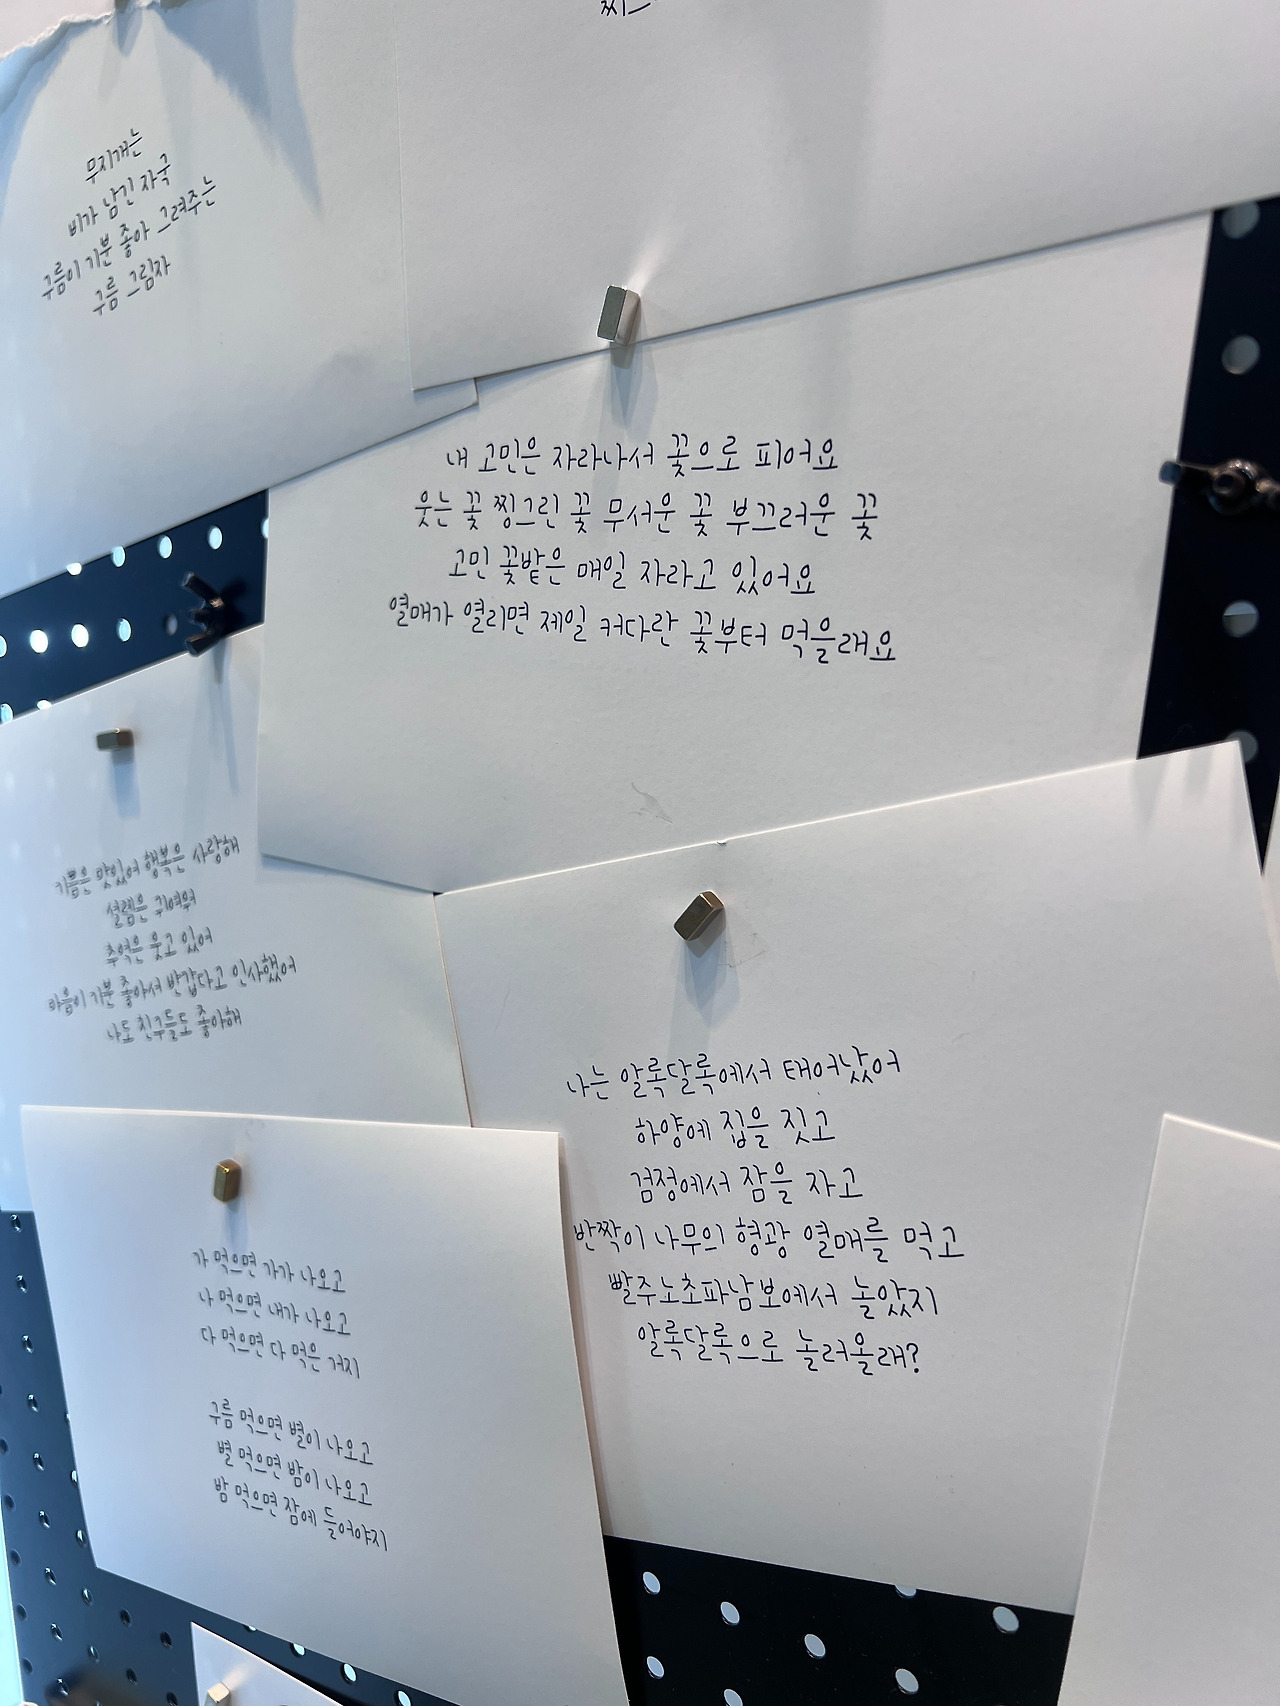 무지개는
비가 남긴 자국
구름이 기분 좋아 그려주는
구름 그림자
내 고민은 자라나서 꽃으로 피어요
웃는 꽃 찡그린 꽃 무서운 꽃 부끄러운 꽃
고민 꽃밭은 매일 자라고 있어요
열매가 열리면 제일 커다란 꽃부터 먹을래요
기쁨은 맛있어 행복은 사랑해
설렘은 귀여워
추억은 웃고 있어
마음이 기분 좋아서 반갑다고 인사했어
나도 친구들도 좋아해
나는 알록달록에서 태어났어
하양에 집을 짓고
검정에서 잠을 자고
반짝이 나무의 형광 열매를 먹고
빨주노초파남보에서 놀았지
알록달록으로 놀러올래?
가 먹으면 가가 나오고
나 먹으면 내가 나오고
다 먹으면 다 먹은 거지
구름 먹으면 별이 나오고
별 먹으면 밤이 나오고
밤 먹으면 잠에 들어야지